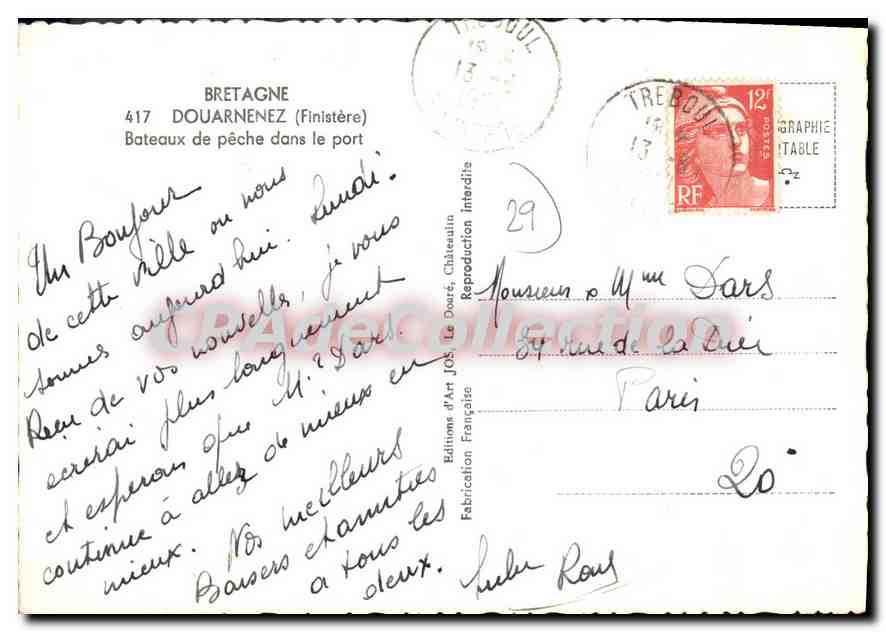 BRETAGNE
417 DOUARNENEZ (Finistère)
Bateaux de pêche dans le port
Un Bonjour
de cette ville ou nous
sommes aujourd'hui. Lundi.
Reçu de vos nouvelles, je vous
écrirai plus longuement
et espérons que Mr Dars.
continue à allez de mieux en
mieux. Nos meilleurs
Baisers et amitiés
a tous les
deux.
Editions d'Art JOS, Le Doaré, Châteaulin
Reproduction interdite
Fabrication Française
TREBOUL
13
TREBOUL
13
12F
POSTES
RF
GRAPHIE
TABLE
29
Monsieur & Mme Dars
84 rue de la
Paris
20
CPAdeCollection.com